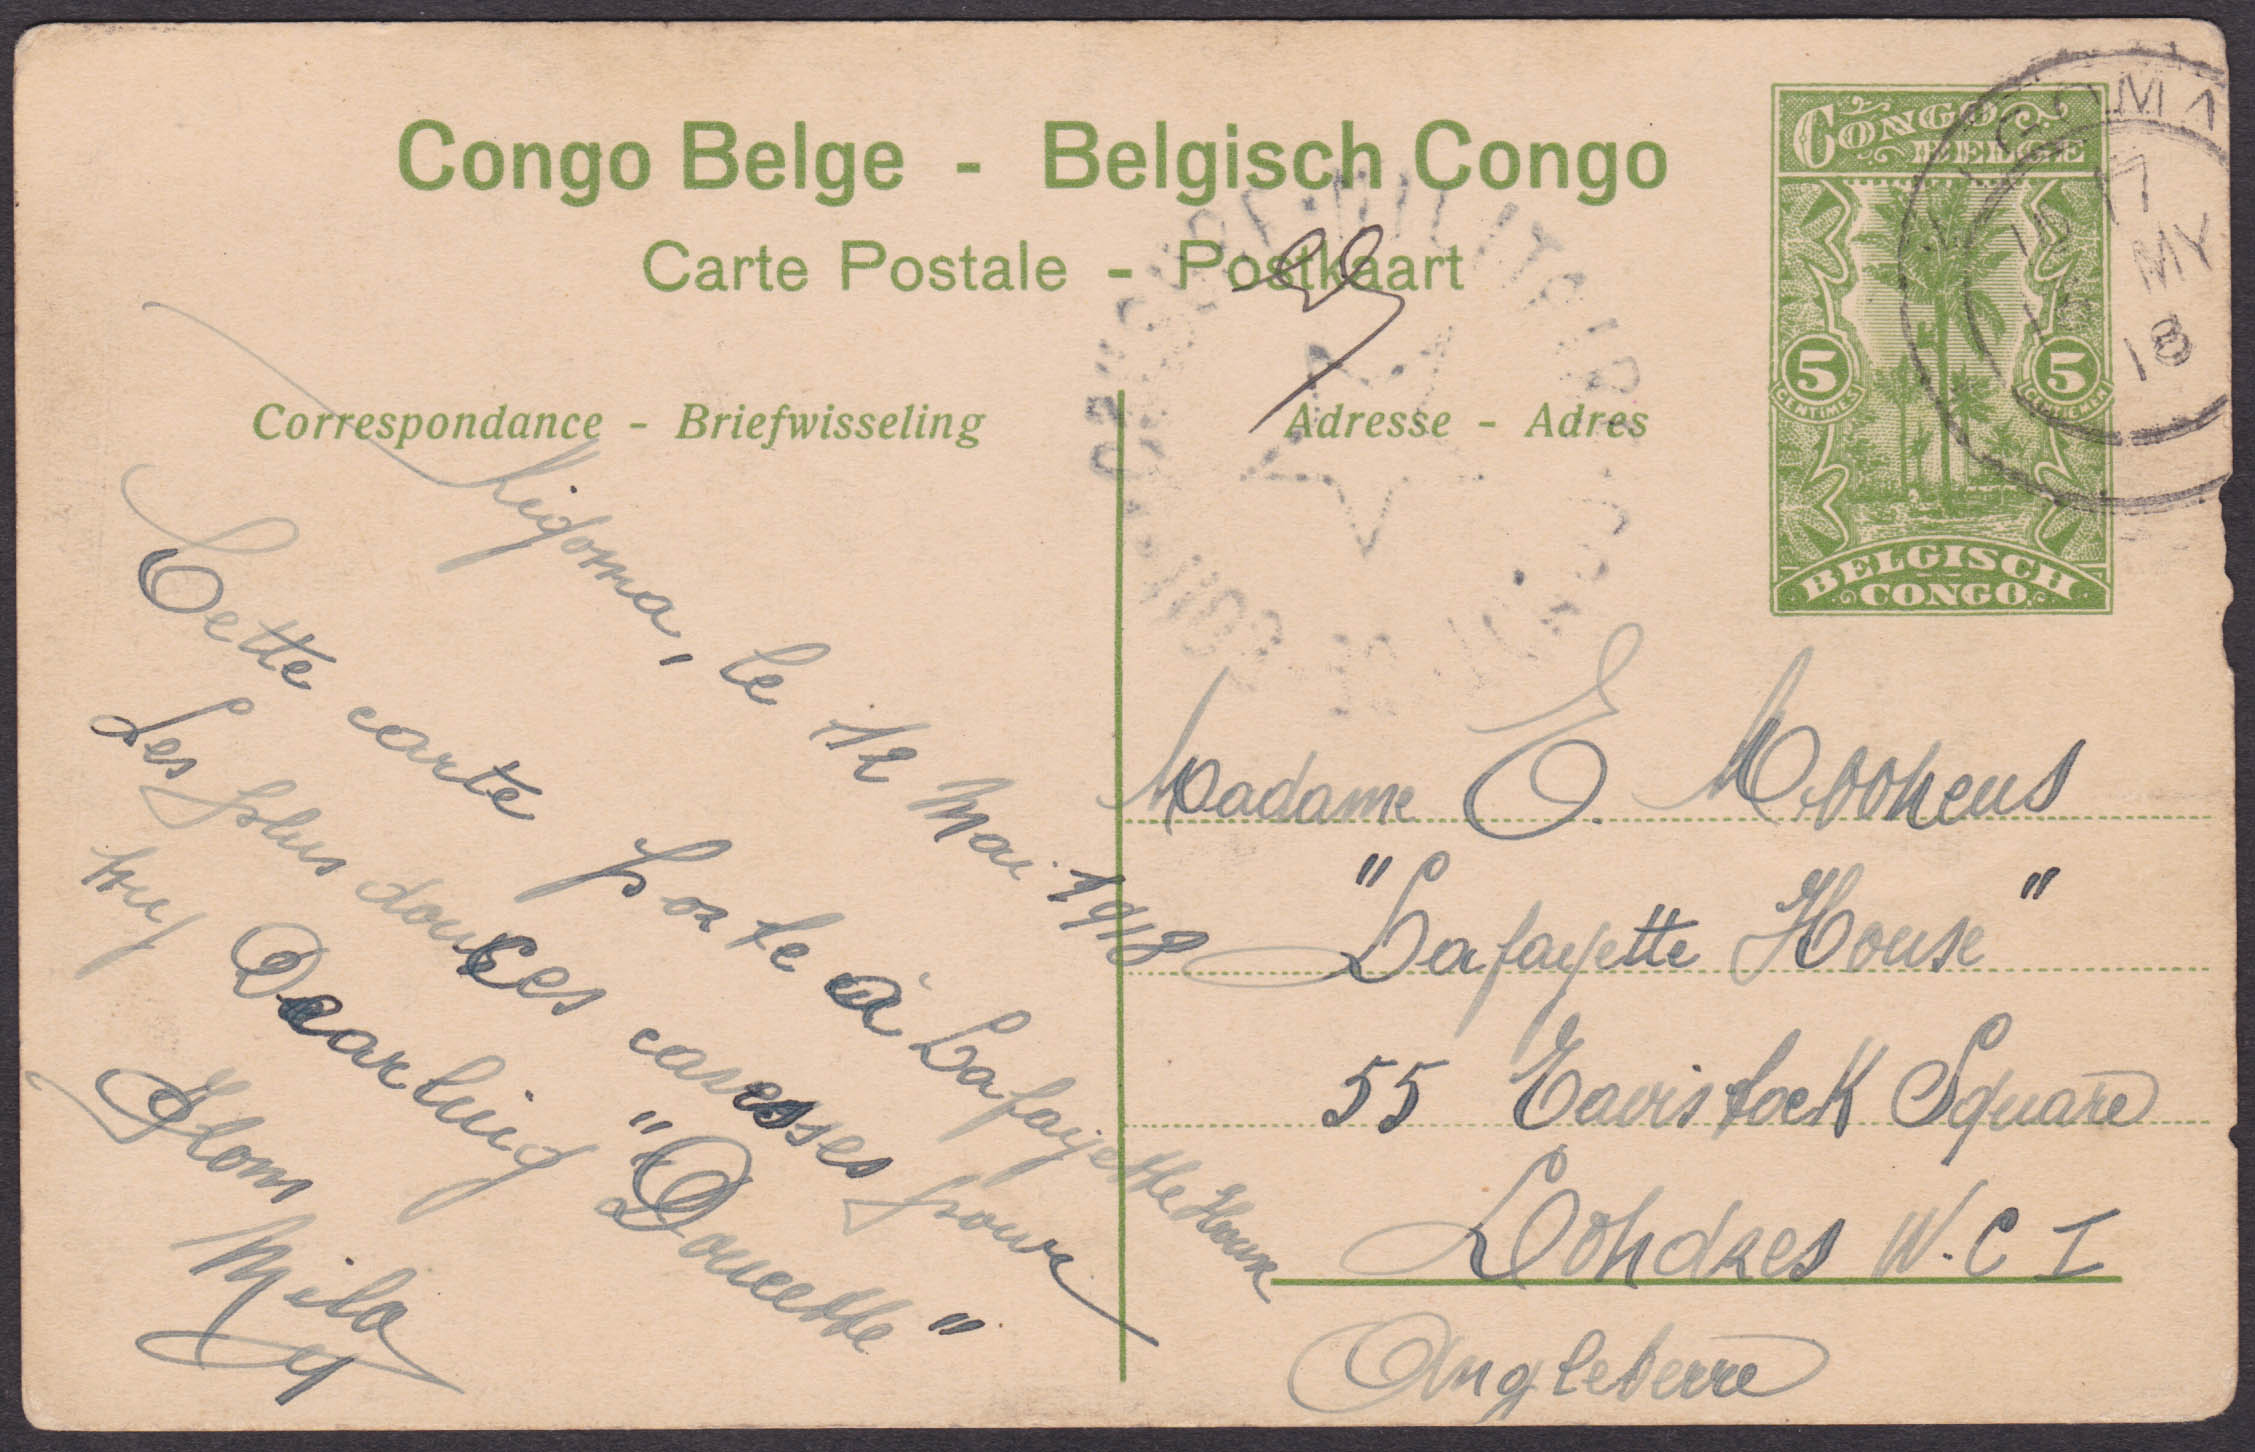 Congo Belge - Belgisch Congo
Carte Postale - Postkaart
Correspondance - Briefwisseling
Adresse - Adres
CONGO BELGE
5 CENTIMES
5 CENTIEMEN
BELGISCH CONGO
KIGOMA
17 MY 18
Kigoma, le 12 Mai 1918
Cette carte porte à Lafayette House
Les plus douces caresses pour
my Dearling "Doucette"
Ton
Mila
Madame E. Mookens
"Lafayette House"
55 Tavistock Square
Londres W.C I
Angleterre